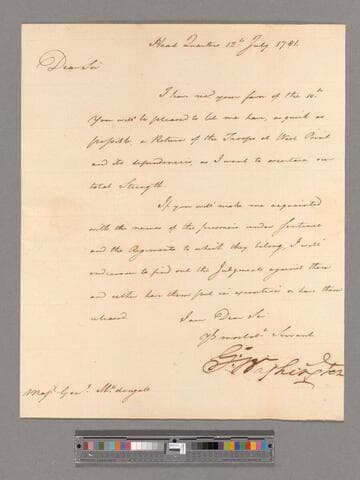 Head Quarters 12th July 1781.
Dear Sir
I have recd your favor of the 10th.
You will be pleased to let me have, as quick as
possible, a Return of the Troops at West Point
and its dependencies, as I want to ascertain our
total Strength.
If you will make me acquainted
with the names of the prisoners under sentence
and the Regiments to which they belong, I will
endeavour to find out the Judgments against them
and either have them put in execution or have them
released.
I am Dear Sir
Yr most obt. Servant
Go: Washington
Majr. Genl. McDougall